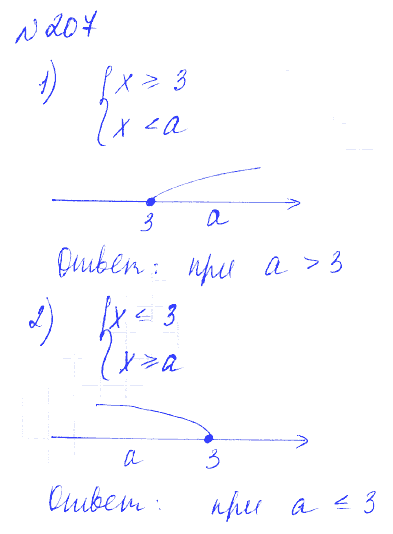 №207
1) { x ≥ 3
{ x < a
3 a
Ответ: при a > 3
2) { x ≤ 3
{ x ≥ a
a 3
Ответ: при a ≤ 3